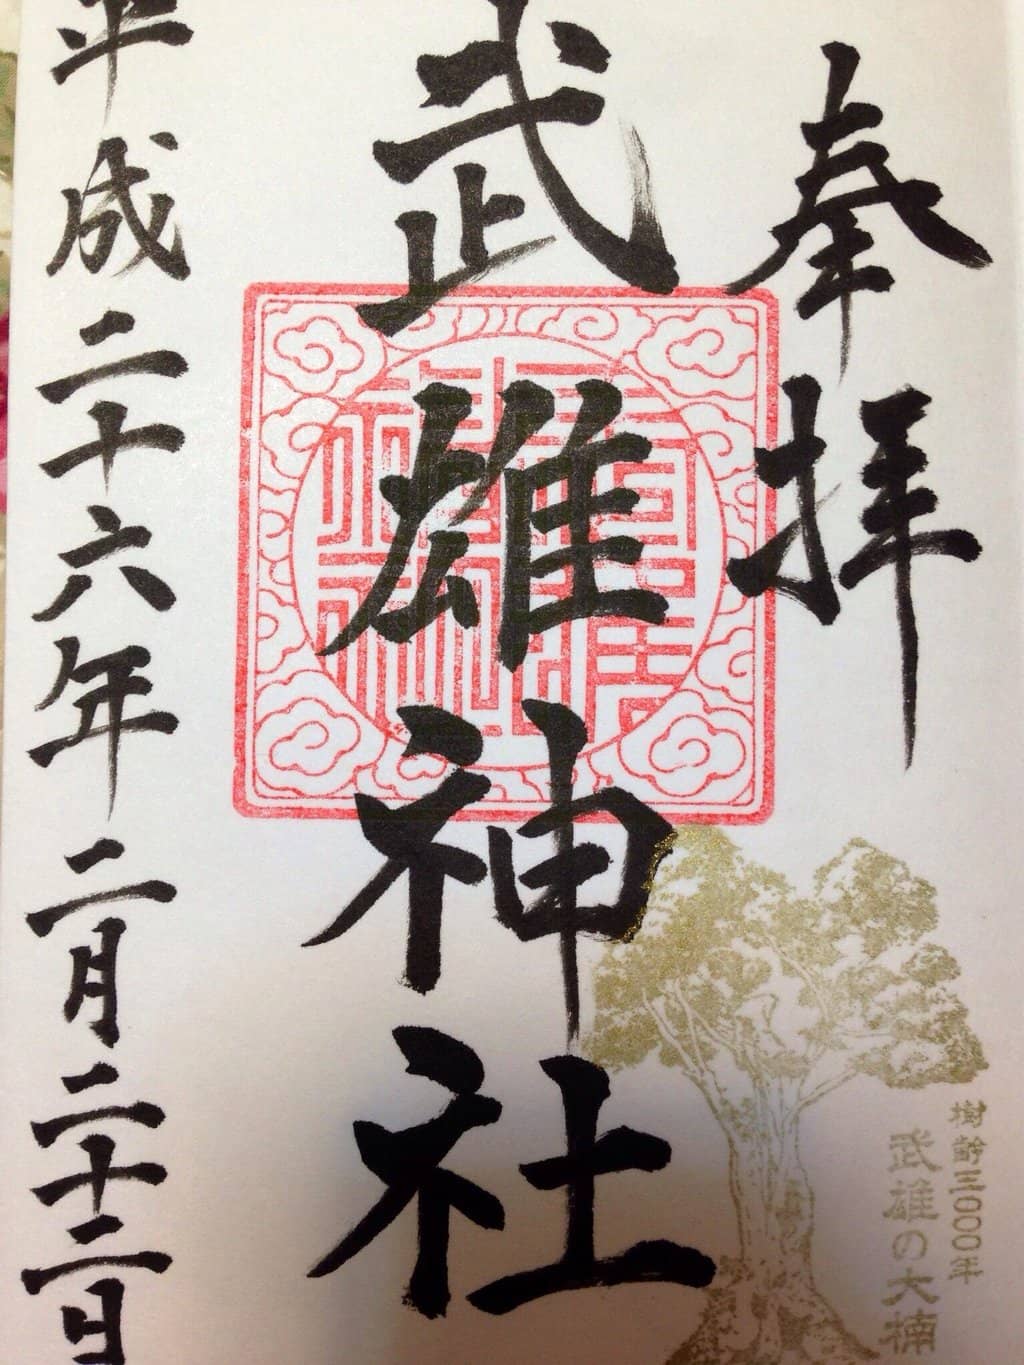 奉拝
武雄神社
平成二十六年二月二十二日
樹齢三〇〇〇年
武雄の大楠